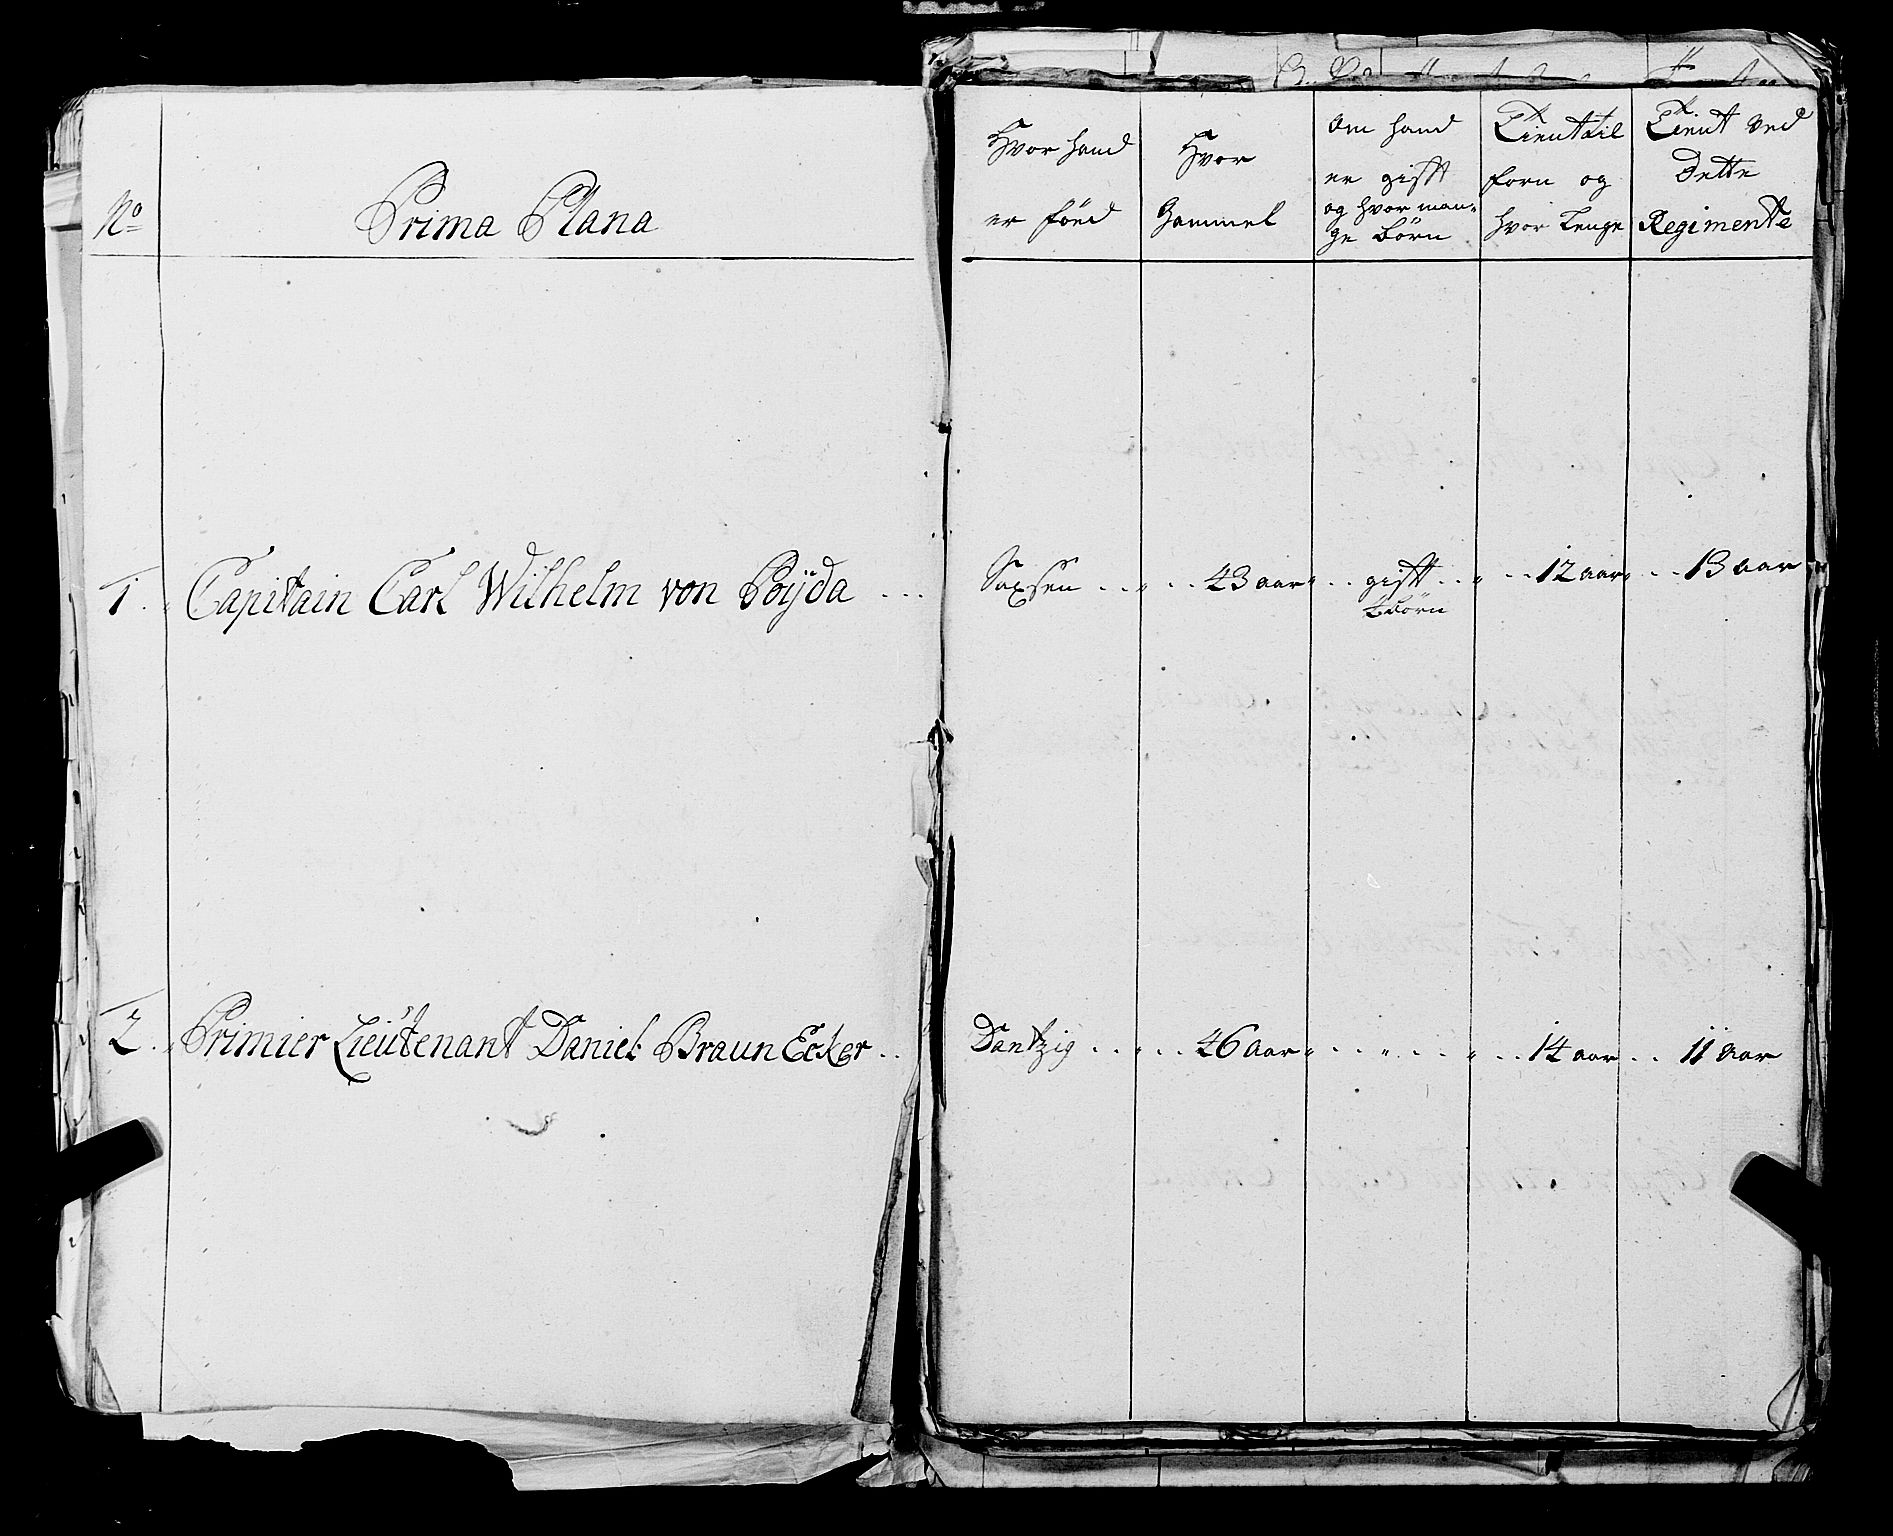 No
Prima Plana
Hvor hand
er föed
Hvor
Gammel
Om hand
er gifft
og hvor man-
ge börn
Tient til
forn og
hvor Lenge
Tient ved
Dette
Regimente
1. Capitain Carl Wilhelm von Böyda ... Saxsen .. 43 aar .. gifft .. 12 aar .. 13 aar
börn
2. Primier Lieütenant Daniel Braun Ecker .. Dantzig .. 46 aar .. 14 aar .. 11 aar